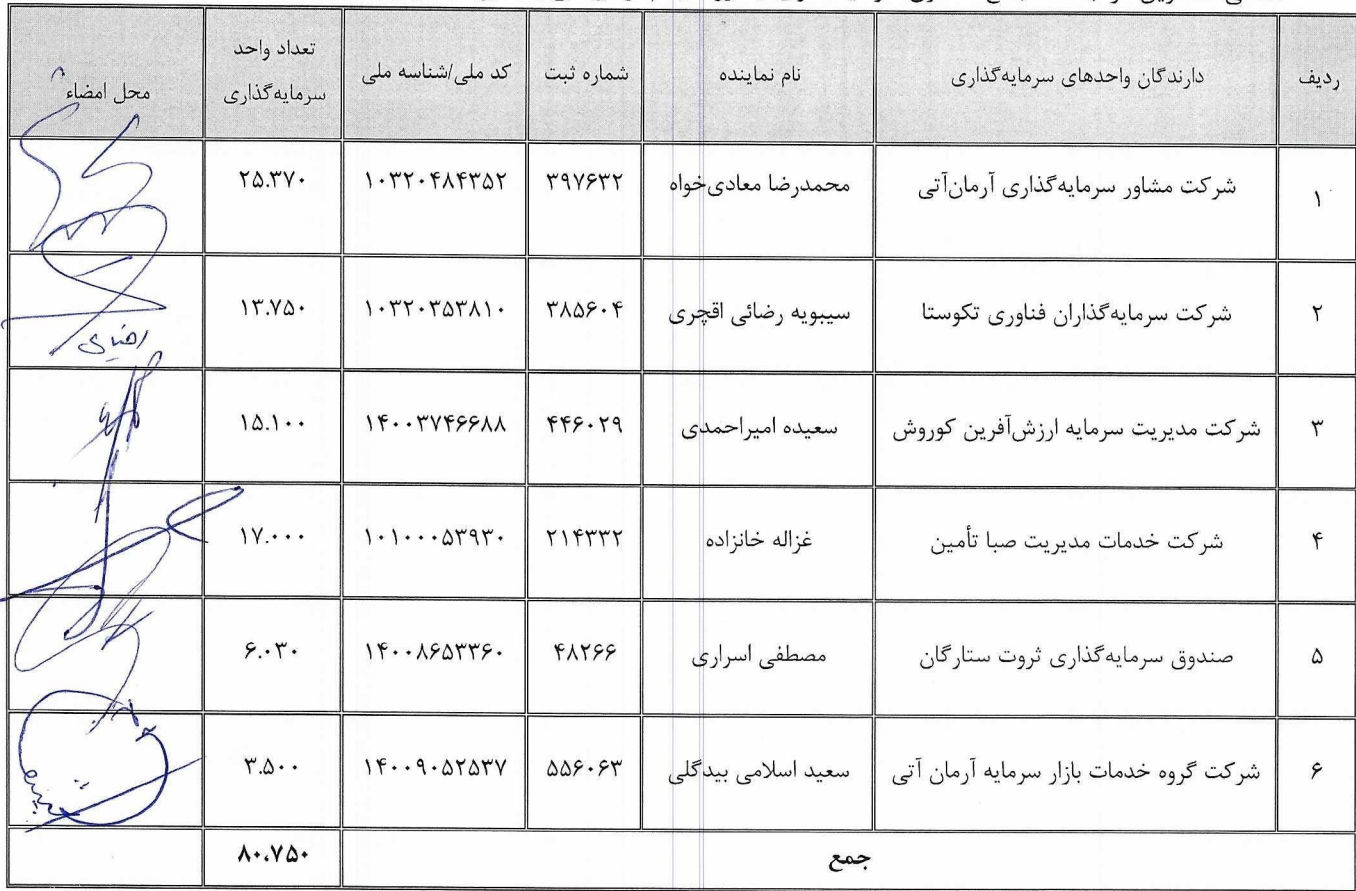 ردیف	دارندگان واحدهای سرمایه‌گذاری	نام نماینده	شماره ثبت	کد ملی/شناسه ملی	تعداد واحد سرمایه‌گذاری	محل امضاء
۱	شرکت مشاور سرمایه‌گذاری آرمان‌آتی	محمدرضا معادی‌خواه	۳۹۷۶۳۲	۱۰۳۲۰۴۸۴۳۵۲	۲۵.۳۷۰
۲	شرکت سرمایه‌گذاران فناوری تکوستا	سیبویه رضائی اقچری	۳۸۵۶۰۴	۱۰۳۲۰۳۵۳۸۱۰	۱۳.۷۵۰
۳	شرکت مدیریت سرمایه ارزش‌آفرین کوروش	سعیده امیراحمدی	۴۴۶۰۲۹	۱۴۰۰۳۷۴۶۶۸۸	۱۵.۱۰۰
۴	شرکت خدمات مدیریت صبا تأمین	غزاله خانزاده	۲۱۴۳۳۲	۱۰۱۰۰۰۵۳۹۳۰	۱۷.۰۰۰
۵	صندوق سرمایه‌گذاری ثروت ستارگان	مصطفی اسراری	۴۸۲۶۶	۱۴۰۰۸۶۵۳۳۶۰	۶.۰۳۰
۶	شرکت گروه خدمات بازار سرمایه آرمان آتی	سعید اسلامی بیدگلی	۵۵۶۰۶۳	۱۴۰۰۹۰۵۲۵۳۷	۳.۵۰۰
جمع	۸۰،۷۵۰